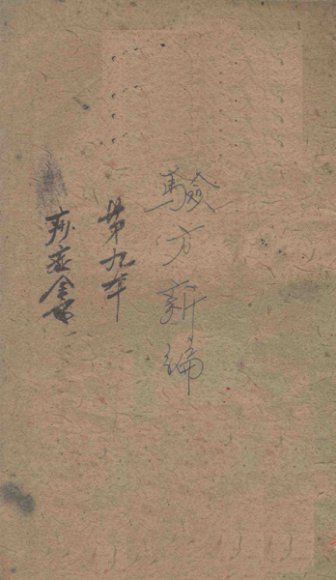 驗方新編
第九本
痧症全